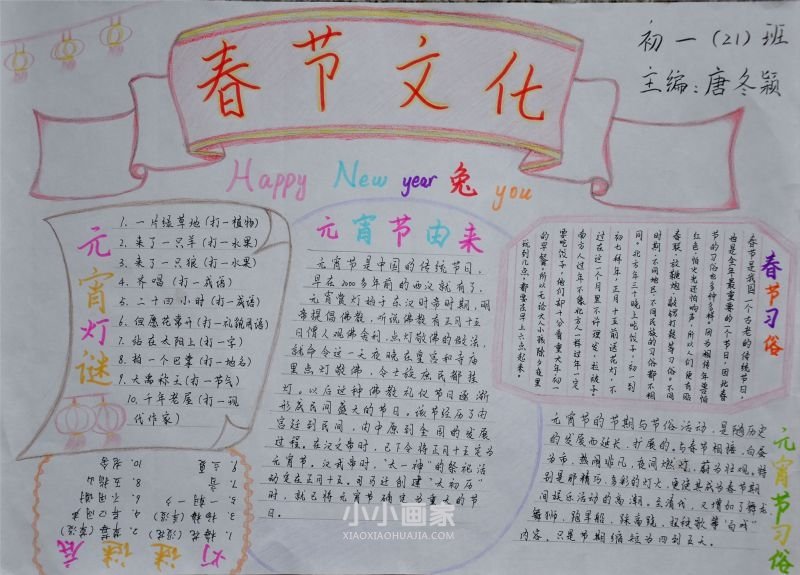 春节文化
初一(21)班
主编:唐冬颖
Happy New year 兔 you
元宵灯谜
1. 一片绿草地(打一植物)
2. 来了一只羊(打一水果)
3. 来了一只狼(打一水果)
4. 齐唱(打一成语)
5. 二十四小时(打一成语)
6. 但愿花常开(打一礼貌用语)
7. 站在太阳上(打一字)
8. 拍一个巴掌(打一地名)
9. 大禹称王(打一节气)
10. 千年老屋(打一现
代作家)
元宵节由来
元宵节是中国的传统节日,
早在2000多年前的西汉就有了,
元宵赏灯始于东汉时帝时期,明
帝提倡佛教,听说佛教有正月十五
日僧人观佛舍利,点灯敬佛的做法,
就命令这一天夜晚在皇宫和寺庙
里点灯敬佛,令士族庶民都挂
灯。以后这种佛教礼仪节日逐渐
形成民间盛大的节日。该节经历了由
宫廷到民间,由中原到全国的发展
过程。在汉文帝时,已下令将正月十五定为
元宵节。汉武帝时,"太一神"的祭祀活
动定在正月十五。司马迁创建"太初历"
时,就已将元宵节确定为重大的节
日。
春节习俗
春节是我国一个古老的传统节日,
也是全年最重要的一个节日,因此春
节的习俗也多种多样。因为相传年兽怕
红色、怕火光还怕响声,所以人们便有贴
春联、放鞭炮、敲锣打鼓等习俗。不同
时期、不同地区、不同民族的习俗都不相
同。北方年三十晚上吃饺子,初一到
初七拜年,正月十五前后送花灯,不
过在这一个月里不许理发。在
南方人过年不像北方人一样过年一定
要吃饺子,他们却十分看重大年初一
的早餐,所以无论大人小孩除夕夜里
玩到几点,都要在早上六点起来。
元宵节习俗
元宵节的节期与节俗活动,是随历史
的发展而延长、扩展的。与春节相接,白昼
为市,热闹非凡,夜间燃灯,蔚为壮观。特
别是那精巧、多彩的灯火,更使其成为春节期
间娱乐活动的高潮。至清代,又增加了舞龙、
舞狮、跑旱船、踩高跷、扭秧歌等"百戏"
内容,只是节期缩短为四到五天。
灯谜谜底
1. 梅花(没花)
2. 草莓(草没)
3. 杨梅(羊没)
4. 异口同声
5. 一朝一夕
6. 不用谢
7. 音
8. 五指山
9. 立夏
10. 老舍
小小画家
XIAOXIAOHUAJIA.COM